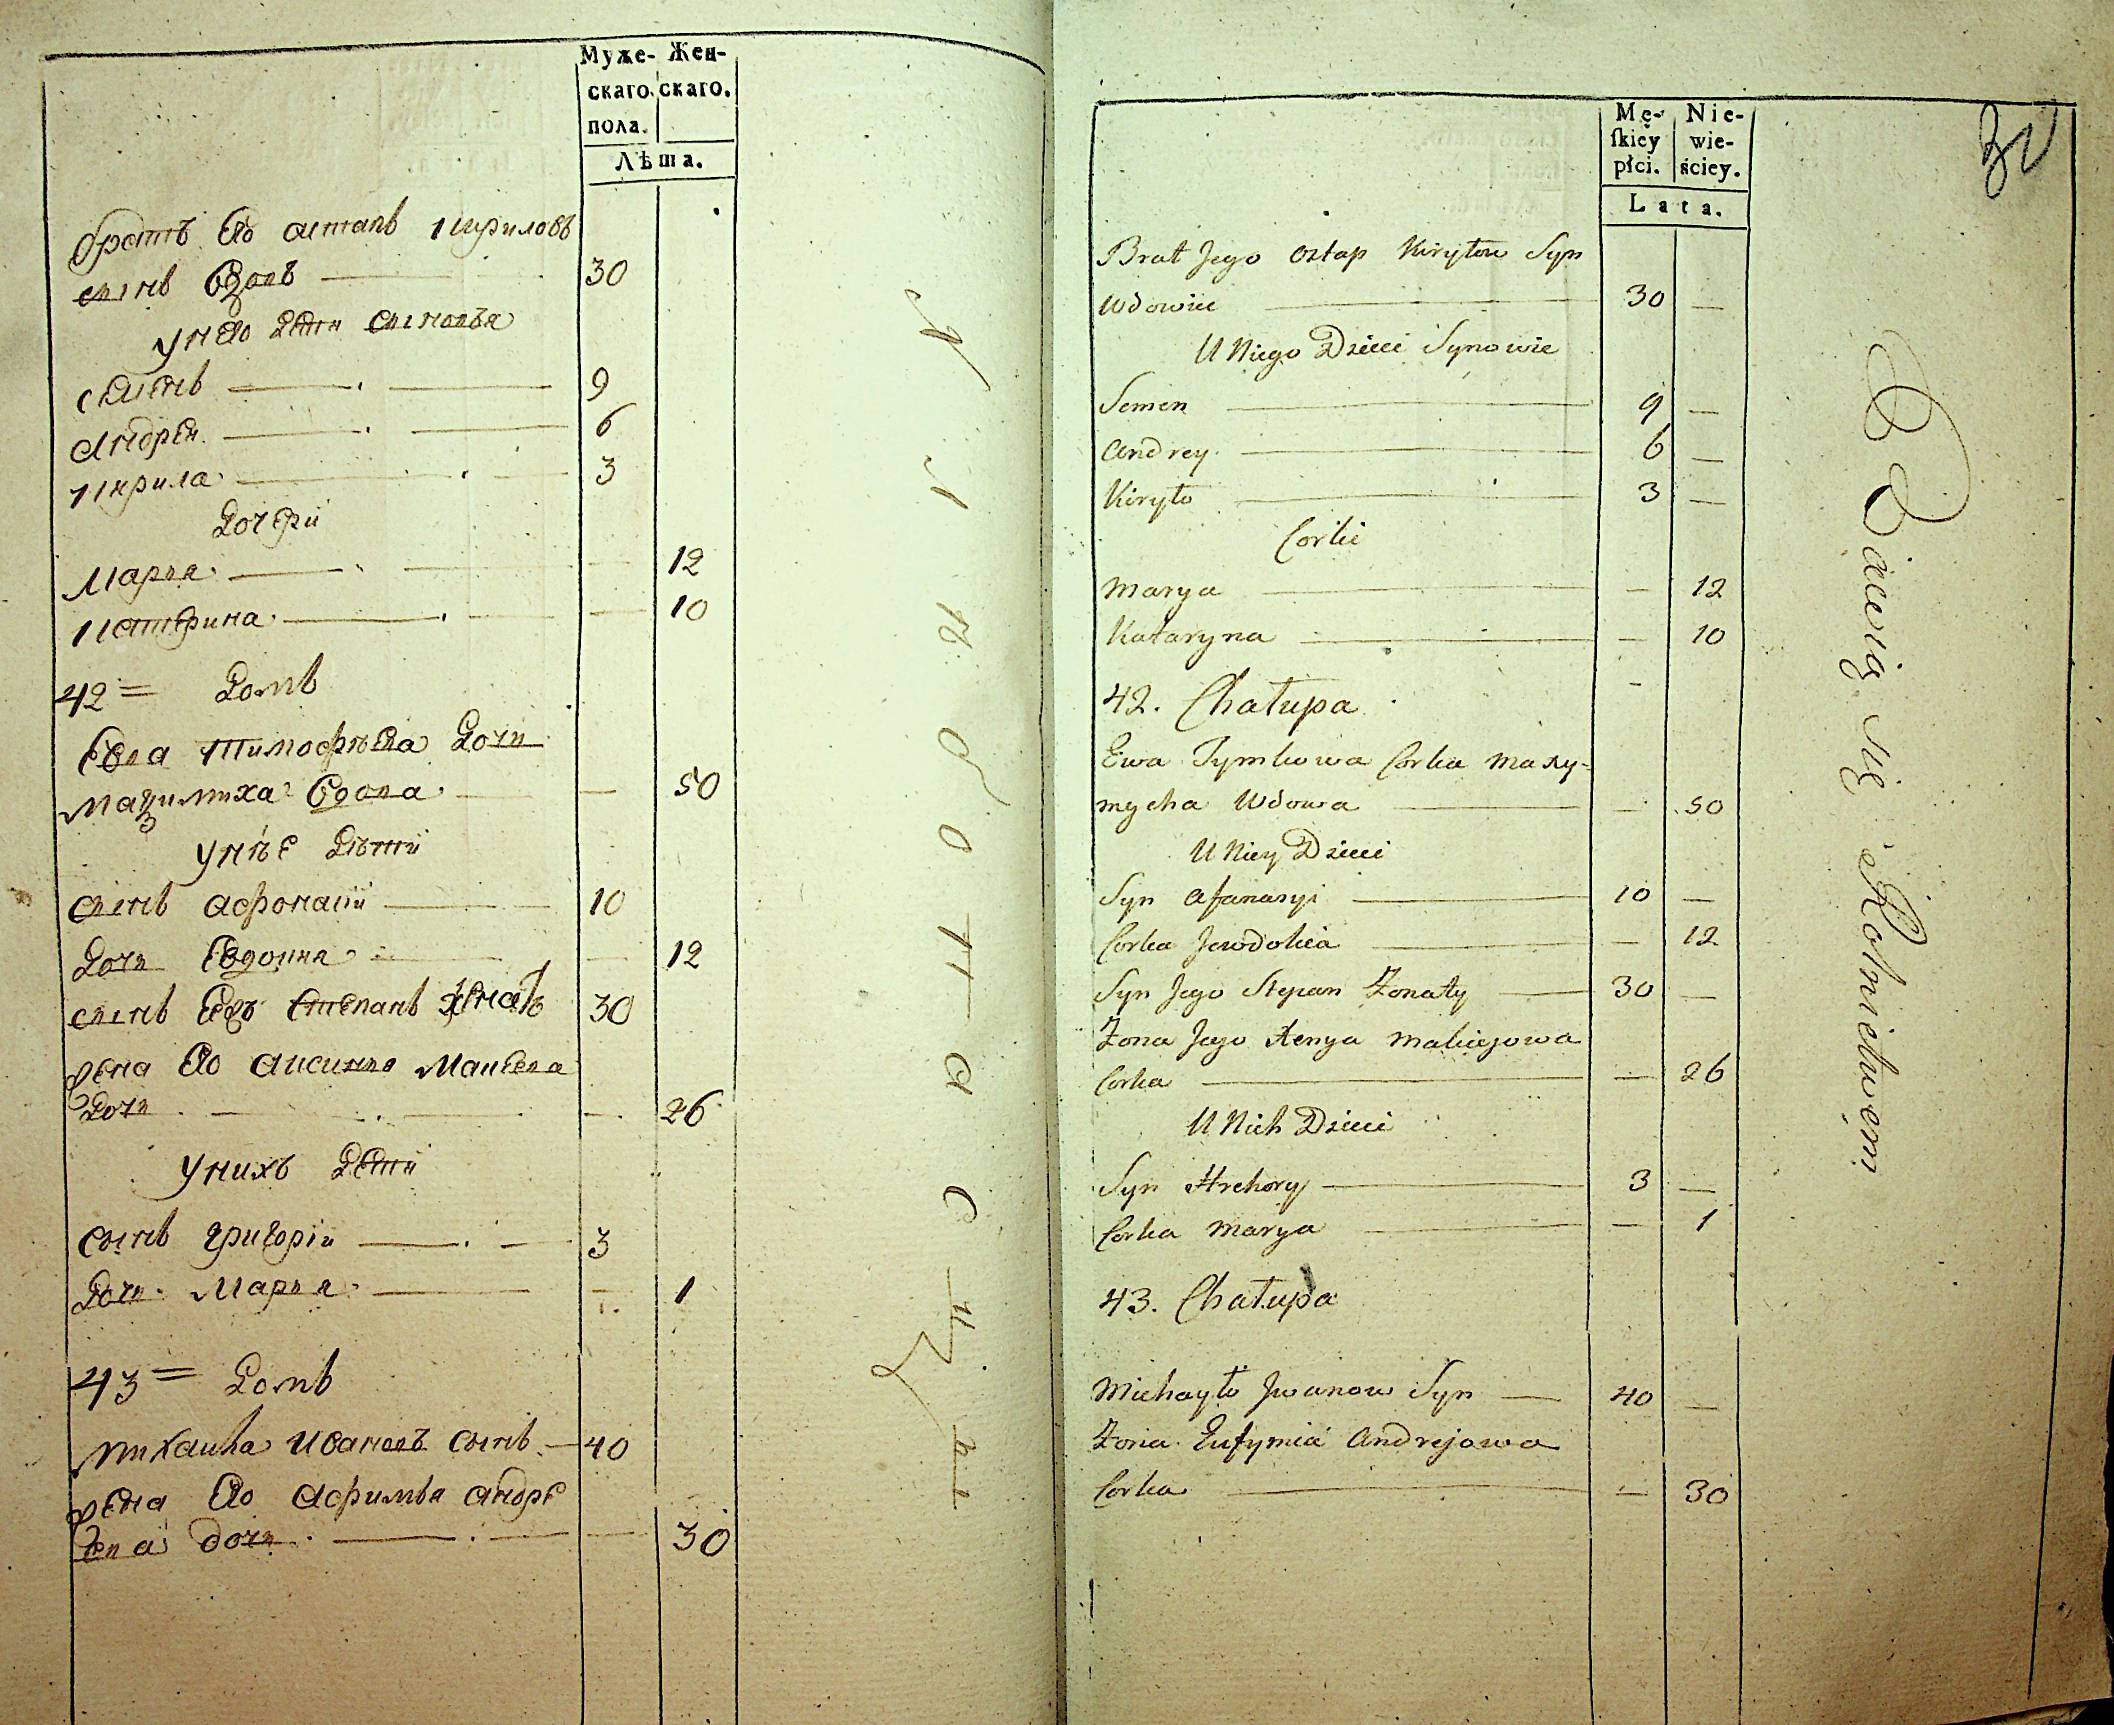 Муже- Жен-
скаго. скаго.
пола.
Лѣта.
братъ Его астапъ кириловъ
сынъ вдовъ 30
у него дети сыновья
семенъ 9
андреи 6
кирила 3
дочери
марья 12
катерина 10
42 = домъ
Евва тимофѣева дочь
мазимиха вдова 50
у нѣе дѣти
сынъ афонасіи 10
дочь Евдокия 12
сынъ Его степанъ женатъ 30
жена Его аксинья макеева
дочь 26
у нихъ дети
сынъ григоріи 3
дочь марья 1
43 = домъ
михаила ивановъ сынъ 40
жена Его афимья андре
ева дочь 30
Mę- Nie-
skiey wie-
płci. ściey.
Lata.
Brat Jego Ostap Kiryłow Syn
Wdowiec 30 —
U Niego Dzieci Synowie
Semen 9 —
Andrey 6 —
Kiryło 3 —
Corki
Marya — 12
Kataryna — 10
42. Chałupa
Ewa Tymkowa Corka Maxy-
mycha Wdowa — 50
U Niey Dzieci
Syn Afanasyi 10 —
Corka Jewdokia — 12
Syn Jego Stepan Żonaty 30 —
Żona Jego Xenya Makiejowa
Corka — 26
U Nich Dzieci
Syn Hrehory 3 —
Corka Marya — 1
43. Chałupa
Michayło Jwanow Syn 40 —
Żona Eufymia Andrejowa
Corka — 30
Bawią się Rolnictwem